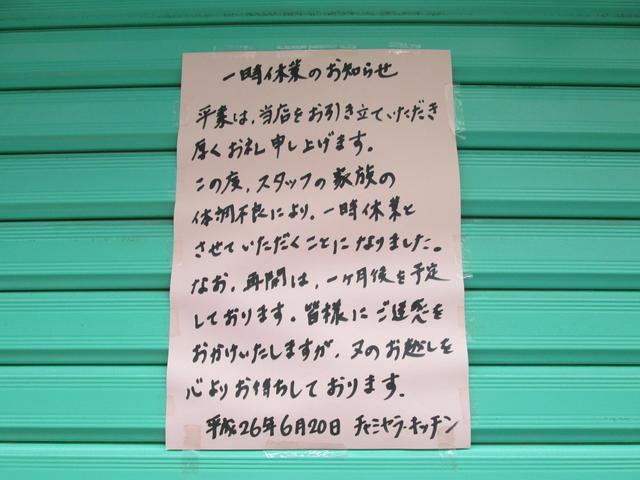 一時休業のお知らせ
平素は、当店をお引き立ていただき
厚くお礼申し上げます。
この度、スタッフの家族の
体調不良により、一時休業と
させていただくことになりました。
なお、再開は、一ヶ月後を予定
しております。皆様にご迷惑を
おかけいたしますが、又のお越しを
心よりお待ちしております。
平成26年6月20日 チャミヤラ・キッチン